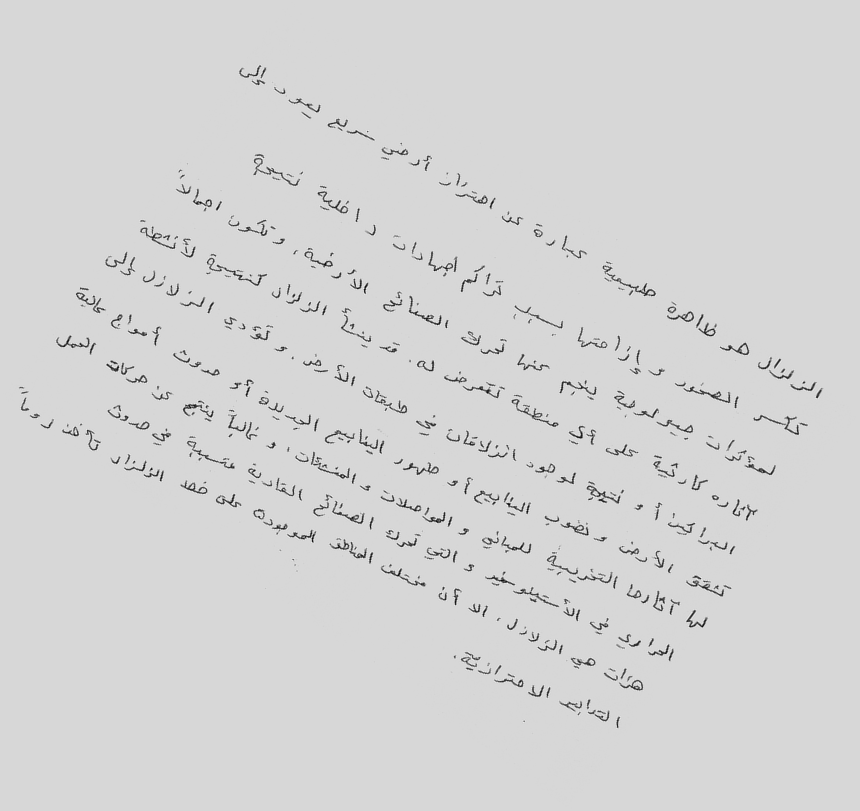 الزلزال هو ظاهرة طبيعية عبارة عن اهتزاز أرضي سريع يعود إلى
تكسر الصخور و إزاحتها بسبب تراكم اجهادات داخلية نتيجة
لمؤثرات جيولوجية ينجم عنها تحرك الصفائح الأرضية، وتكون اجمالاً
آثاره كارثية على أي منطقة تتعرض له. قد ينشأ الزلزال كنتيجة لأنشطة
البراكين أو نتيجة لوجود انزلاقات في طبقات الأرض. و تؤدي الزلازل إلى
تشقق الأرض و نضوب الينابيع أو ظهور الينابيع الجديدة أو حدوث أمواج عالية
لها آثارها التخريبية للمباني و المواصلات و المنشئات، و غالباً ينتج عن حركات الحمل
الحراري في الأستينوسفير و التي تحرك الصفائح القارية متسببة في حدوث
هزات هي الزلازل، الا أن مختلف المناطق الموجودة على خط الزلزال تأخذ لزوماً
التدابير الاحترازية.